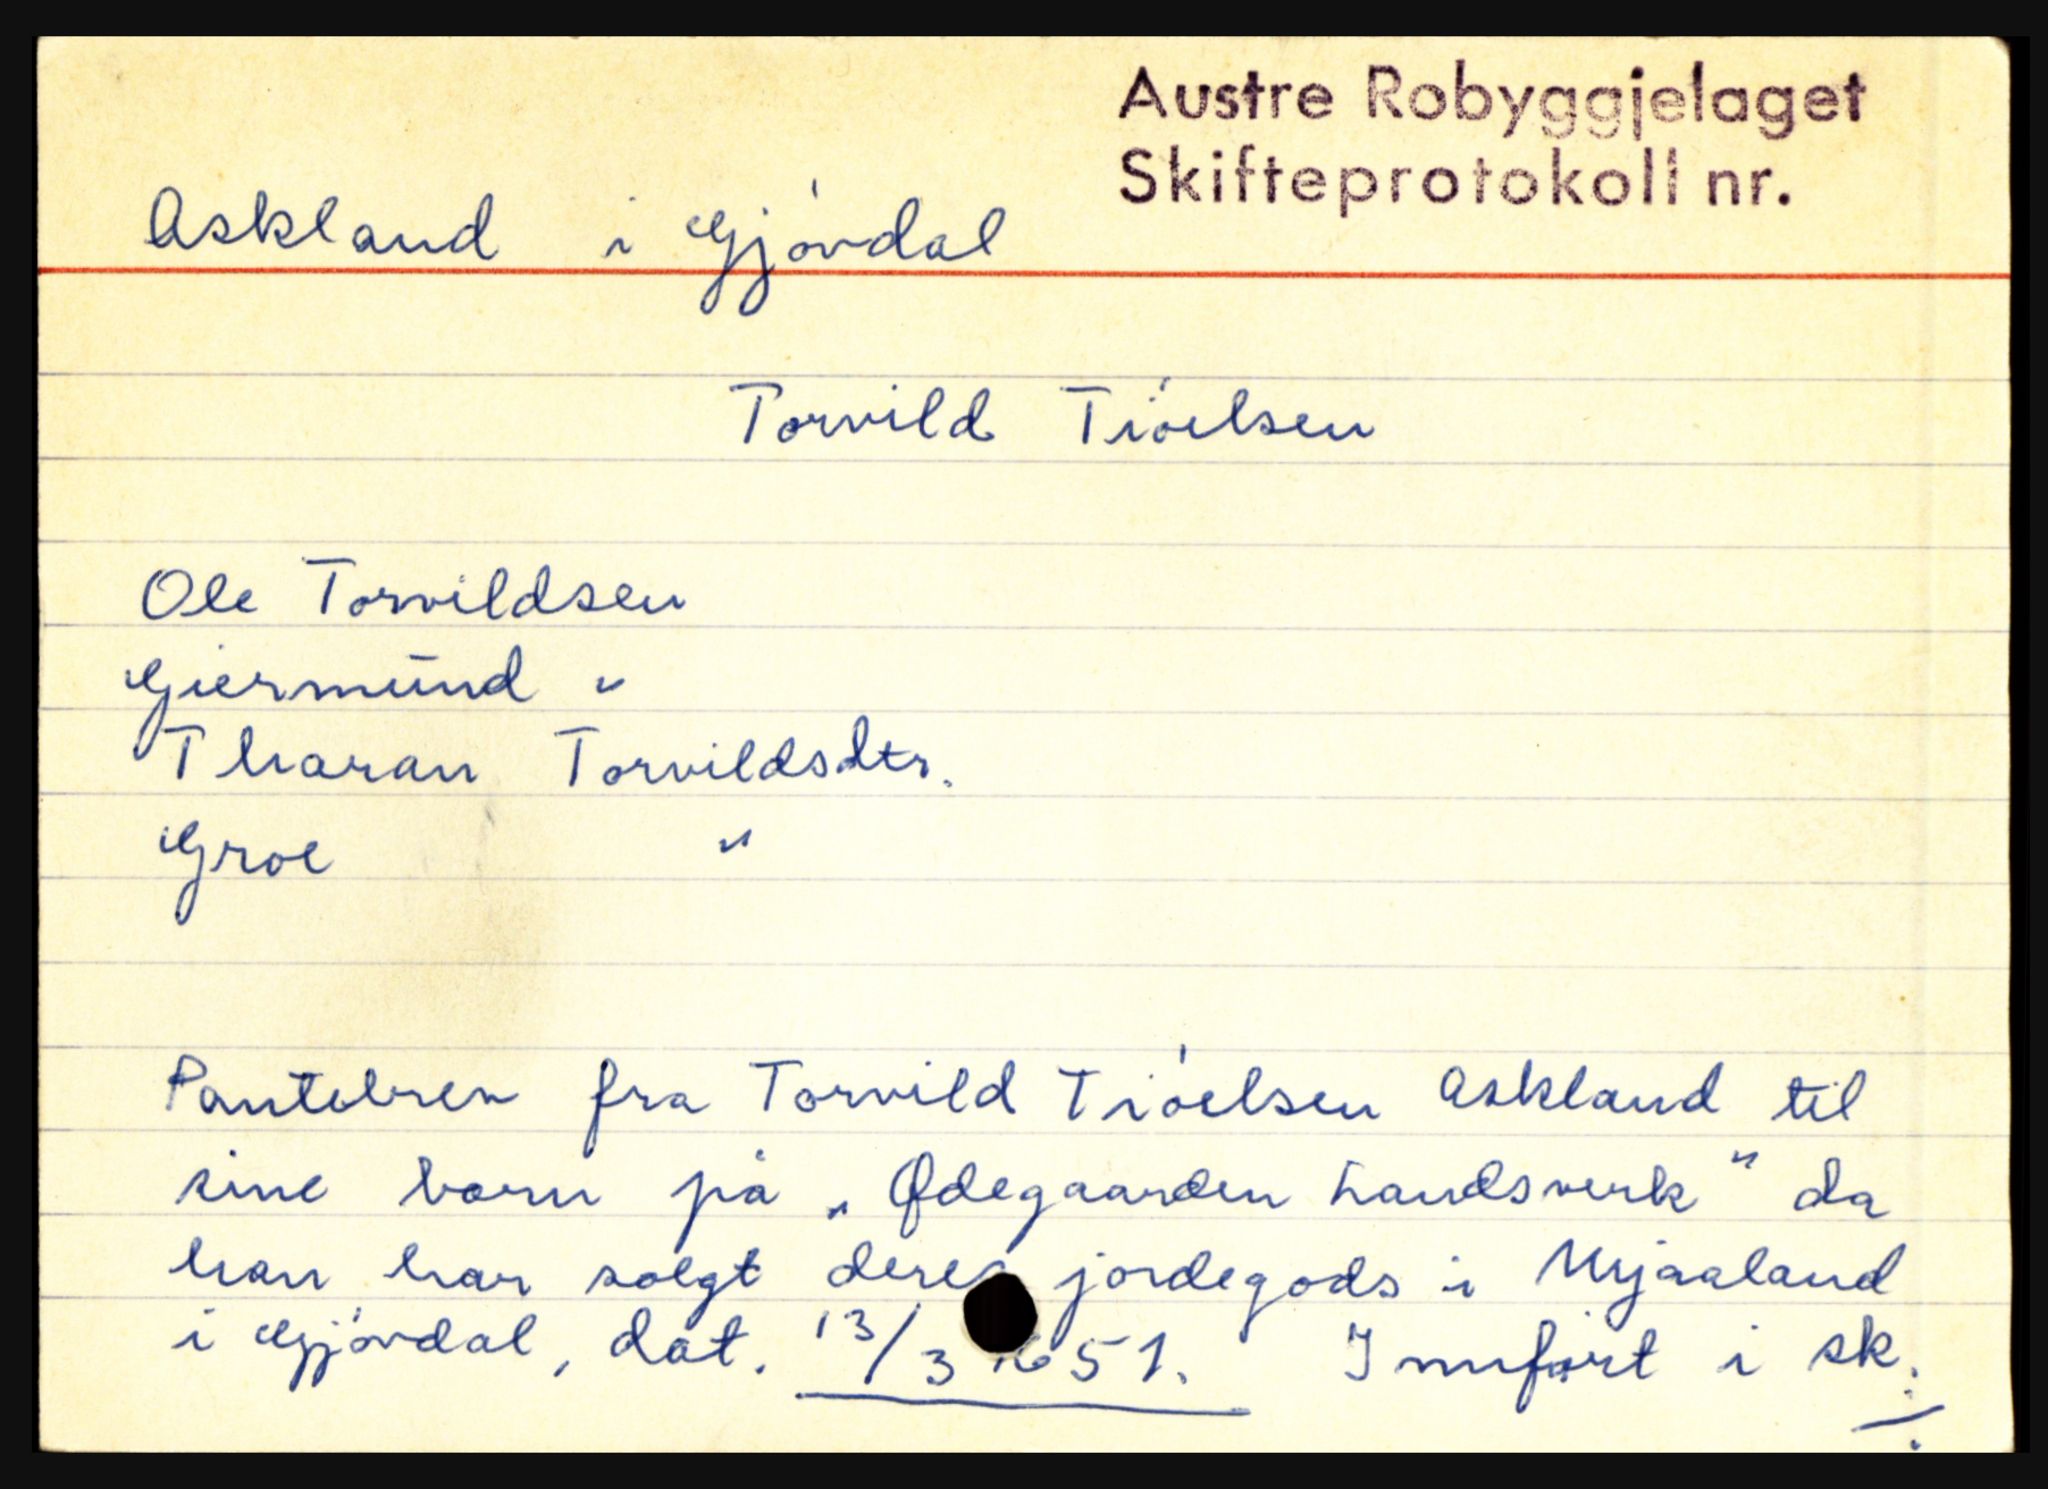 Austre Robyggjelaget
Skifteprotokoll nr.
Askland i Gjóvdal
Torvild Tióelsen
Ole Torvildsen
Giermünd "
Tharan Torvildsdtr.
Groe "
Pantebrev fra Torvild Tióelsen Askland til
sine born på „Ødegaarden Landsverk" da
han har solgt deres jordegods i Mjaaland
i Gjóvdal, dat. 13/3 1651. Innfört i sk.
./.